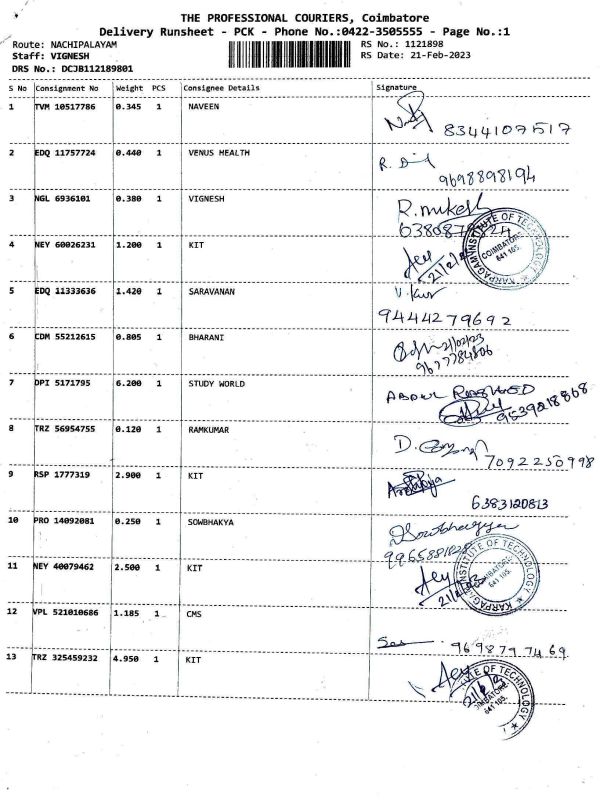 THE PROFESSIONAL COURIERS, Coimbatore
Delivery Runsheet - PCK - Phone No.:0422-3505555 - Page No.:1
Route: NACHIPALAYAM RS No.: 1121898
Staff: VIGNESH RS Date: 21-Feb-2023
DRS No.: DCJB112189801
S No Consignment No Weight PCS Consignee Details Signature
1 TVM 10517786 0.345 1 NAVEEN
8344107517
2 EDQ 11757724 0.440 1 VENUS HEALTH
9698898194
3 NGL 6936101 0.380 1 VIGNESH R.mukesh
4 NEY 60026231 1.200 1 KIT
KARPAGAM INSTITUTE OF TECHNOLOGY
COIMBATORE
641 105.
5 EDQ 11333636 1.420 1 SARAVANAN
9444279692
6 CDM 55212615 0.805 1 BHARANI
21/02/23
9677784806
7 DPI 5171795 6.200 1 STUDY WORLD
9539218868
8 TRZ 56954755 0.120 1 RAMKUMAR
7092250998
9 RSP 1777319 2.900 1 KIT
6383120813
10 PRO 14092081 0.250 1 SOWBHAKYA Sowbhagya
11 NEY 40079462 2.500 1 KIT
KARPAGAM INSTITUTE OF TECHNOLOGY
COIMBATORE
641 105.
12 VPL 521010686 1.185 1 CMS
9698797469
13 TRZ 325459232 4.950 1 KIT
TE OF TECHNOLOGY
OIMBATORE
641 105.